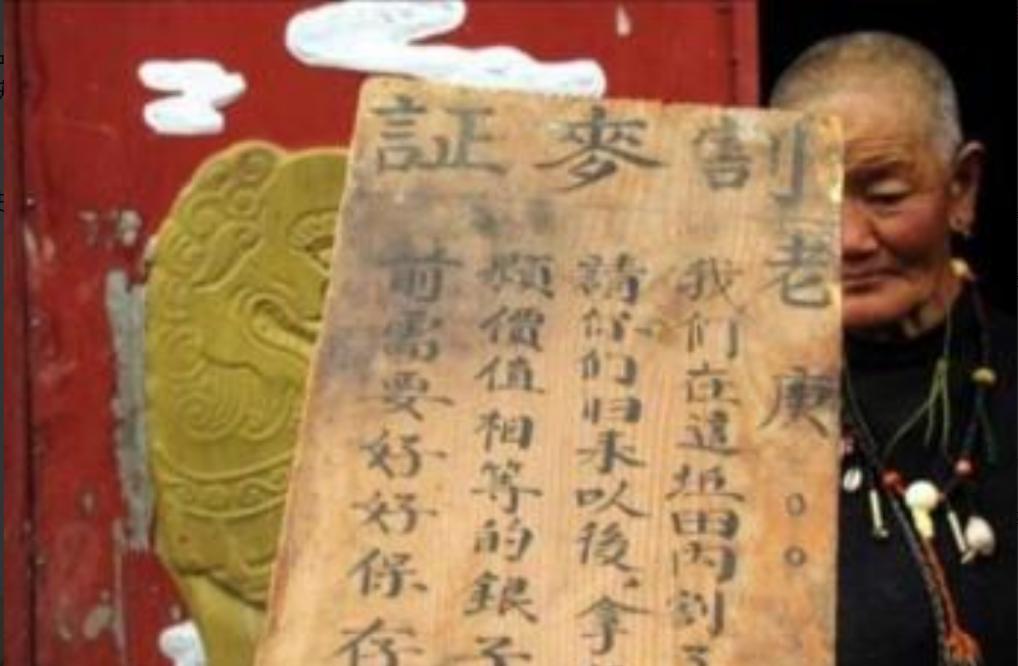 割麥証
老庚。。
我们在這坵田内割了
請你们归来以後，拿
類價值相等的銀子
前需要好好保存